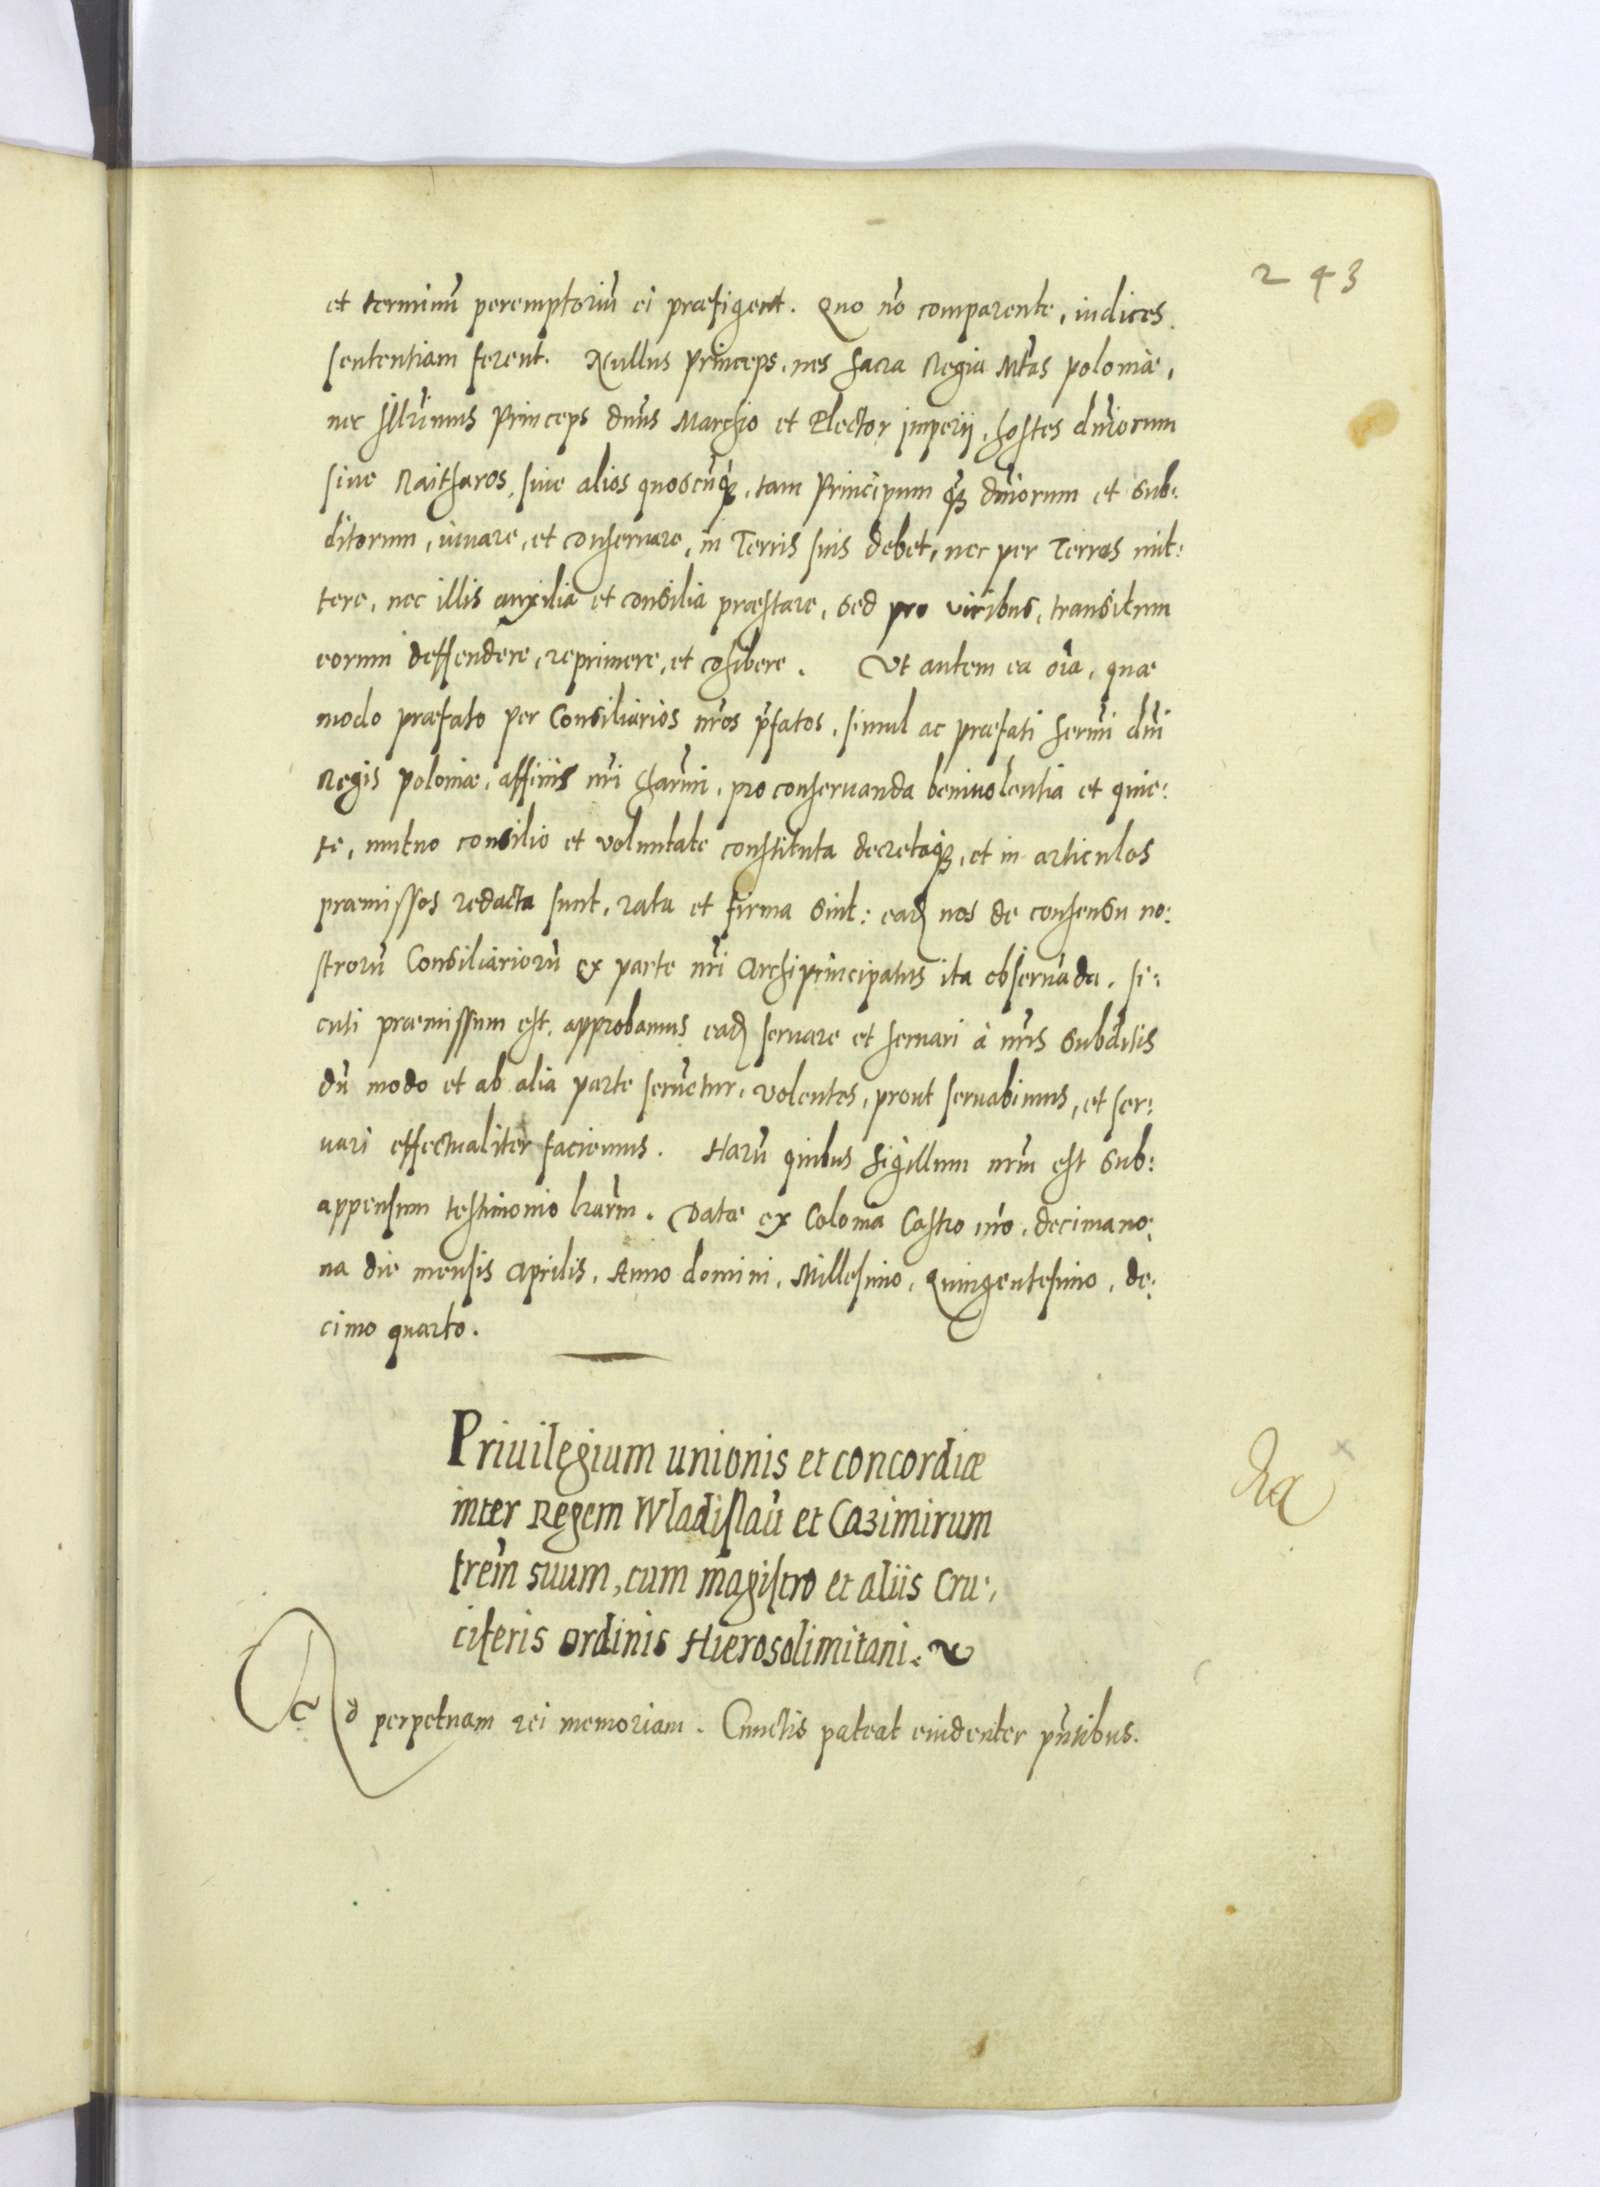 243
et terminū peremptoriū ei præfigent. Quo nō comparente, iudices
sententiam ferent. Nullus Princeps, nec Sacra Regia Mtas Poloniæ,
nec Illrimus Princeps dnus Marchio et Elector imperij, hostes dniorum
siue Raitharos, siue alios quoscūq3, tam Principum q3 dniorum et sub:
ditorum, iuuare, et conseruare, in Terris suis debet, nec per Terras mit:
tere, nec illis auxilia et consilia præstare, sed pro viribus, transitum
eorum deffendere, reprimere, et cohibere. Vt autem ea oīa, quæ
modo præfato per Consiliarios nr̄os p̄fatos, simul ac præfati Sermi dnī
Regis Poloniæ, affinis nr̄i Charmi, pro conseruanda beniuolentia et quie:
te, mutuo consilio et voluntate constituta decretaq3, et in articulos
præmissos redacta sunt, rata et firma sint: eadē nos de consensu no:
strorū Consiliariorū ex parte nr̄i Archiprincipatus ita obseruāda, si:
cuti præmissum est, approbamus eadē seruare et seruari à nr̄is subditis
dū modo et ab alia parte seruetur, volentes, prout seruabimus, et ser:
uari effectualiter faciemus. Harū quibus Sigillum nr̄m est sub:
appensum testimonio lrarūm. Datæ ex Colonia Castro nr̄o, decimano:
na die mensis Aprilis, Anno domini, Millesimo, Quingentesimo, de:
cimo quarto.
Priuilegium unionis et concordiæ
inter Regem Wladislaū et Cazimirum
frēm suum, cum magistro et aliis Cru:
ciferis ordinis Hierosolimitani.
Ad perpetuam rei memoriam. Cunctis pateat euidenter pn̄tibus.